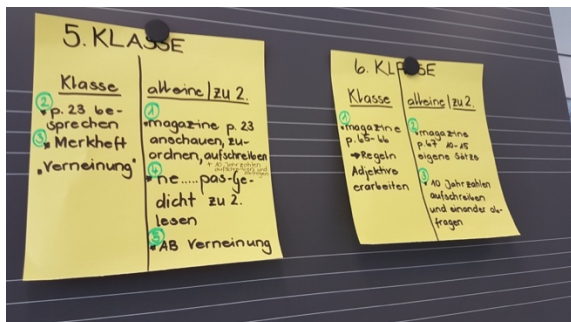 5. KLASSE
Klasse
② p. 23 be-
sprechen
③ Merkheft
"Verneinung"
alleine / zu 2.
①
• magazine p. 23
anschauen, zu-
ordnen, aufschreiben
+ 10 Jahrzahlen
aufschreiben und
④
• ne.....pas-Ge-
dicht zu 2.
lesen
⑤
• AB Verneinung
6. KLASSE
Klasse
①
• magazine
p. 65-66
→ Regeln
Adjektive
erarbeiten
alleine / zu 2.
②
• magazine
p. 67 10-15
eigene Sätze
③
• 10 Jahrzahlen
aufschreiben
und einander ab-
fragen